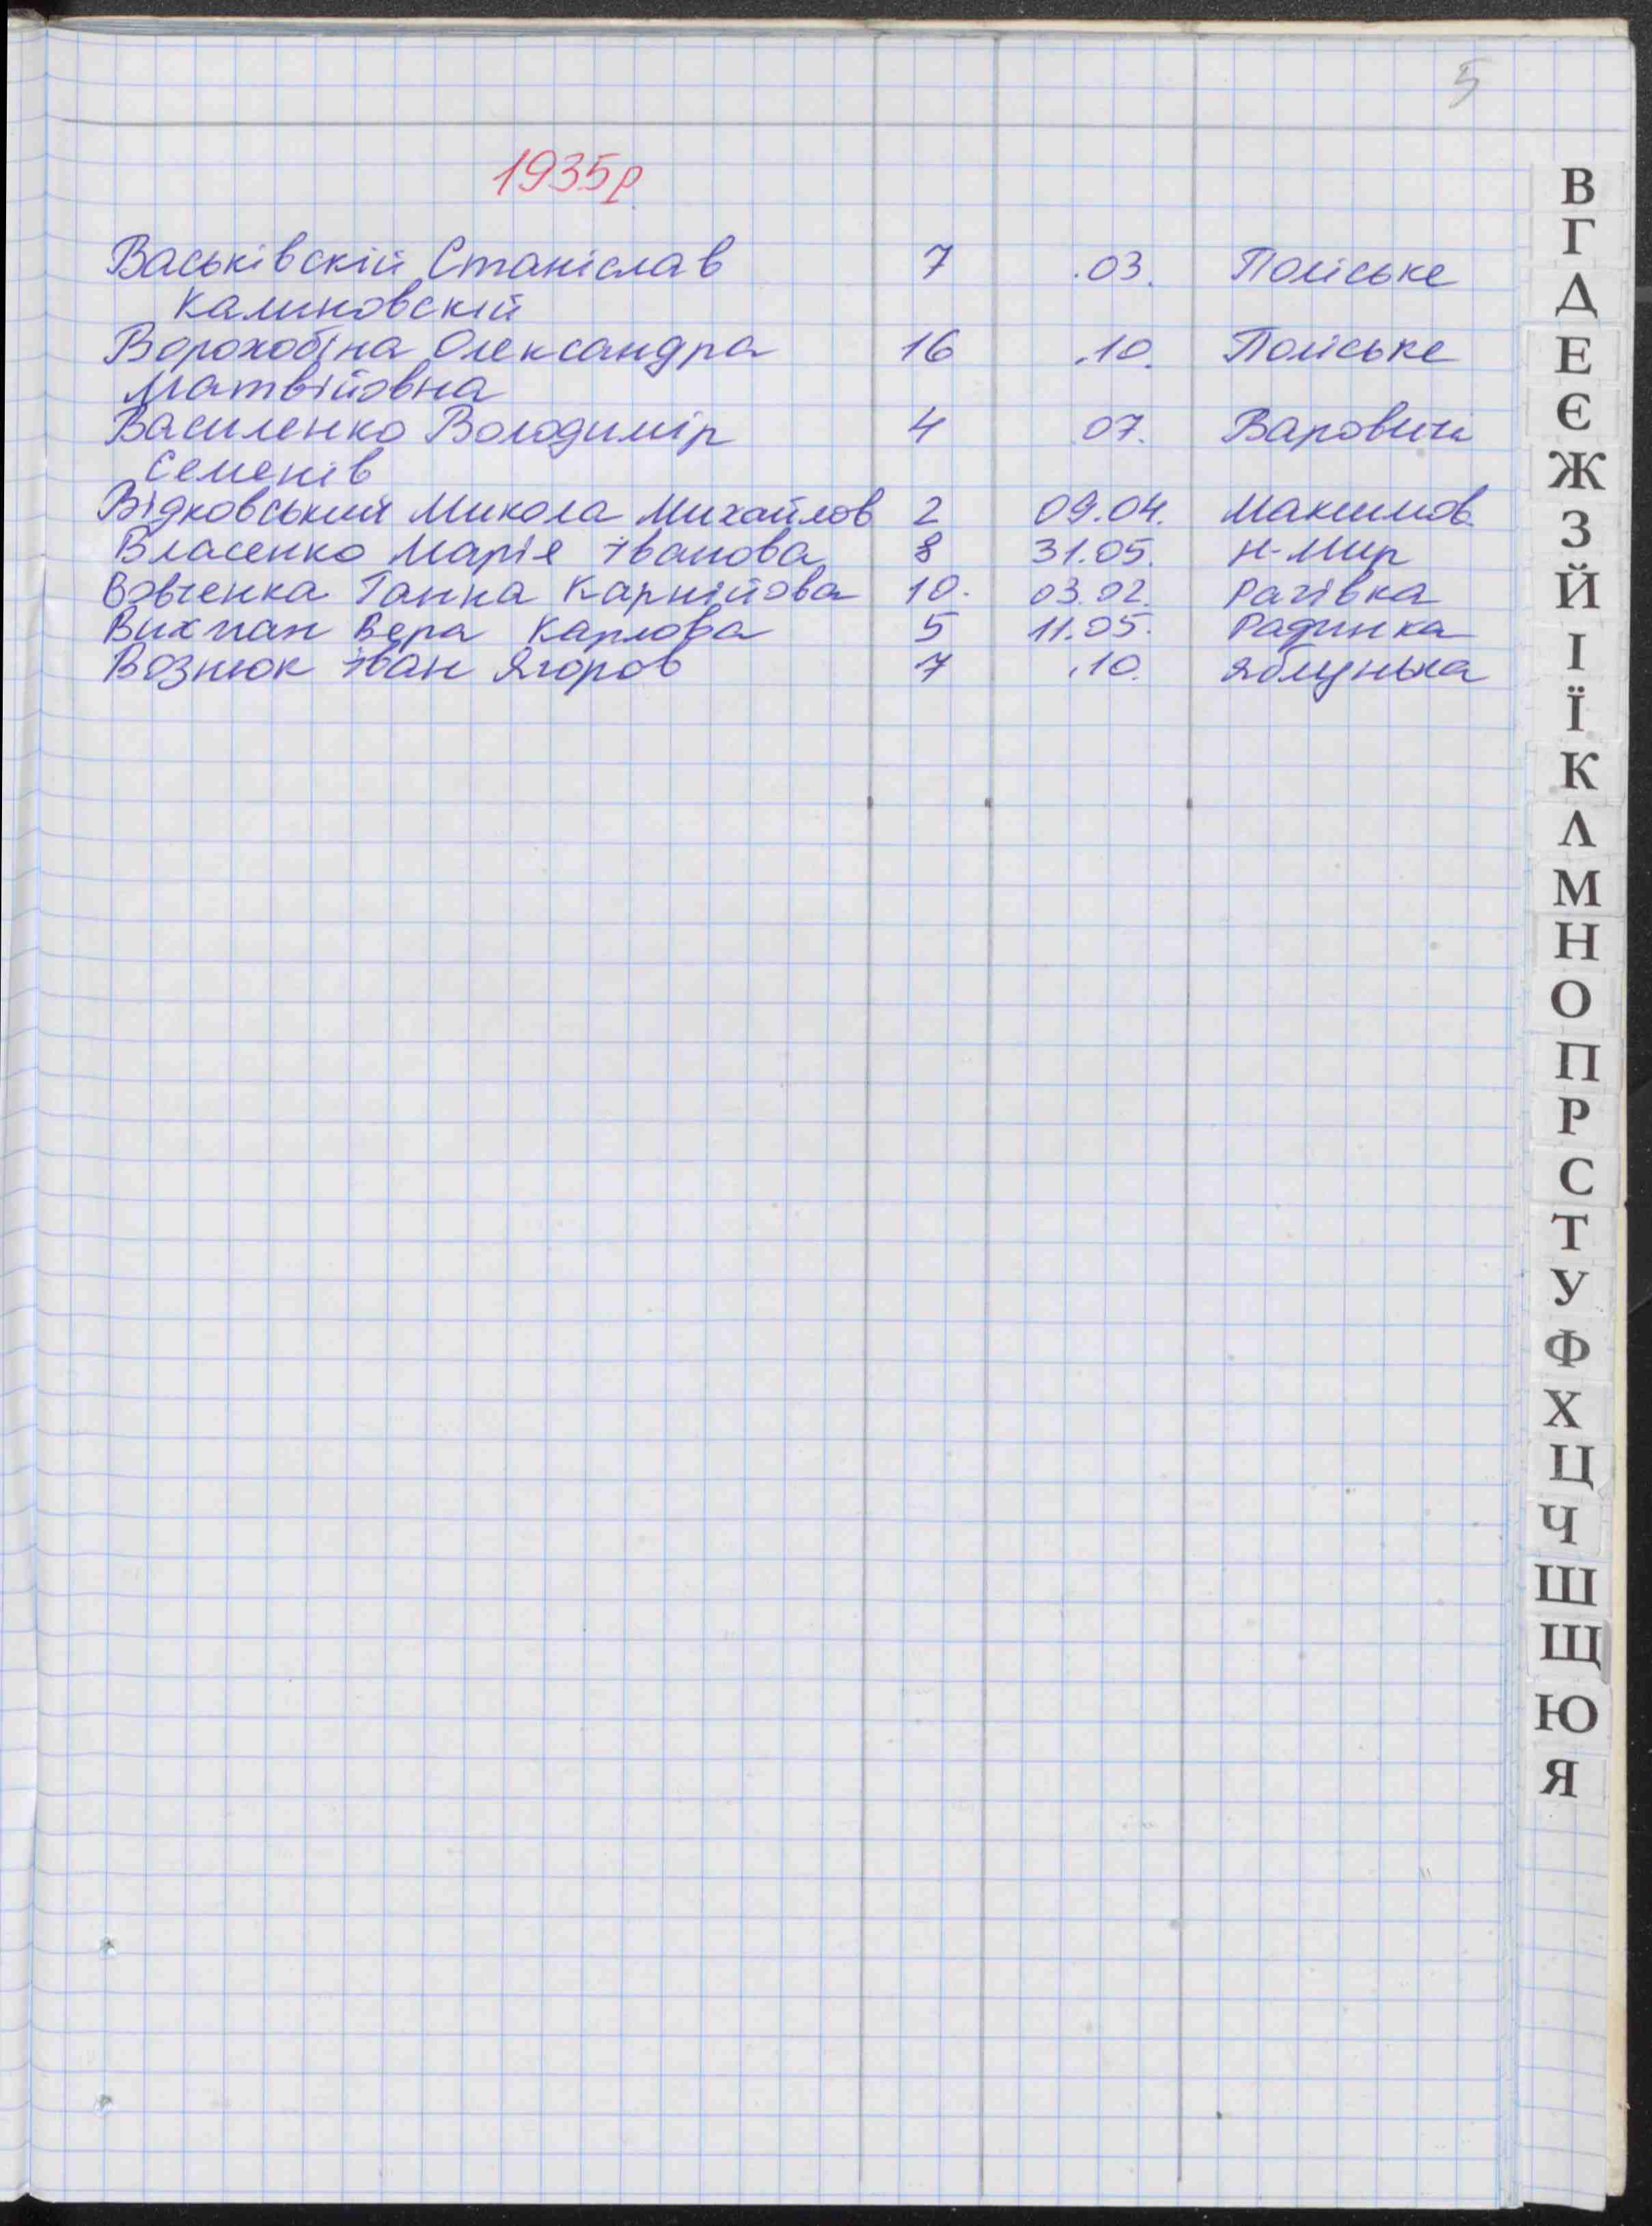 5
1935р.
Васьківскій Станіслав 7 .03. Поліське
Калиновскій
Ворохобіна Олександра 16 .10. Поліське
Матвійовна
Василенко Володимір 4 07. Варовичі
Семенів
Відковський Микола Михайлов 2 09.04. Максимов.
Власенко Марія Іванова 8 31.05. Н-Мир
Вовченка Ганна Карнійова 10. 03.02. Рагівка
Вихман Вера Карлова 5 11.05. Радинка
Вознюк Іван Ягоров 7 .10. Яблунька
В
Г
Д
Е
Є
Ж
З
Й
І
Ї
К
Л
М
Н
О
П
Р
С
Т
У
Ф
Х
Ц
Ч
Ш
Щ
Ю
Я